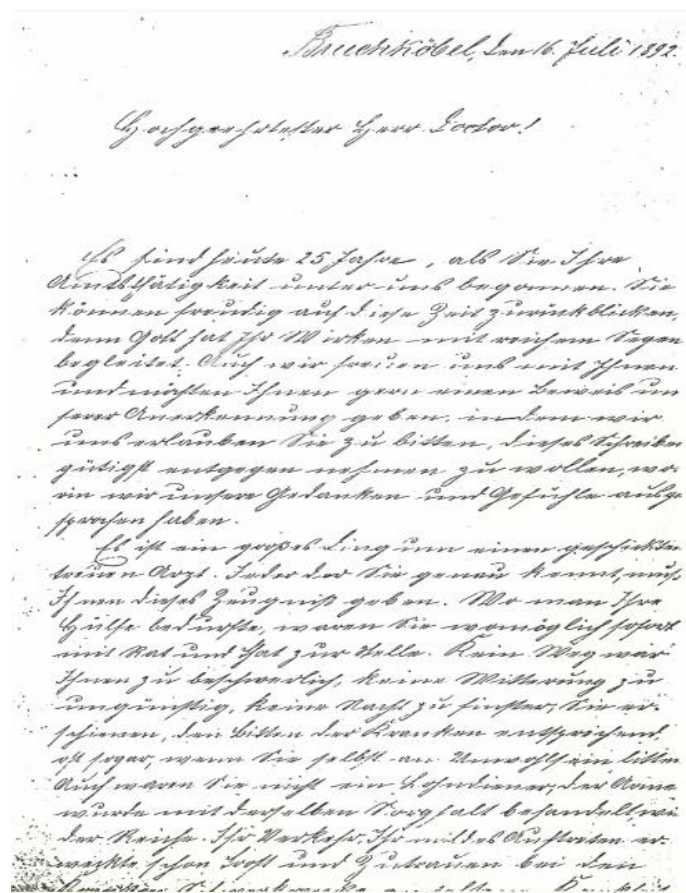 Bruchköbel, den 16. Juli 1892.
Hochgeehrtester Herr Doctor!
Es sind heute 25 Jahre, als Sie Ihre
Amtsthätigkeit unter uns begonnen. Sie
können freudig auf diese Zeit zurückblicken,
denn Gott hat Ihr Wirken mit reichem Segen
begleitet. Auch wir freuen uns mit Ihnen
und möchten Ihnen gern einen Beweis un
serer Anerkennung geben, indem wir
uns erlauben Sie zu bitten, dieses Schreiben
gütigst entgegen nehmen zu wollen, wo-
rin wir unsere Gedanken und Gefühle ausge
sprochen haben.
Es ist ein großes Ding um einen geschickten
treuen Arzt. Jeder der Sie genau kennt, muß
Ihnen dieses Zeugniß geben. Wo man Ihre
Hülfe bedurfte, waren Sie womöglich sofort
mit Rat und That zur Stelle. Kein Weg war
Ihnen zu beschwerlich, keine Witterung zu
ungünstig, keine Nacht zu finster, Sie er-
schienen, den Bitten der Kranken entsprechend
oft sogar, wenn Sie selbst an Unwohlsein litten
Auch waren Sie nicht ein Lohndiener, der Arme
wurde mit derselben Sorgfalt behandelt wie
der Reiche. Ihr Verkehr, Ihr mildes Auftreten er-
weckte schon Trost und Zutrauen bei den